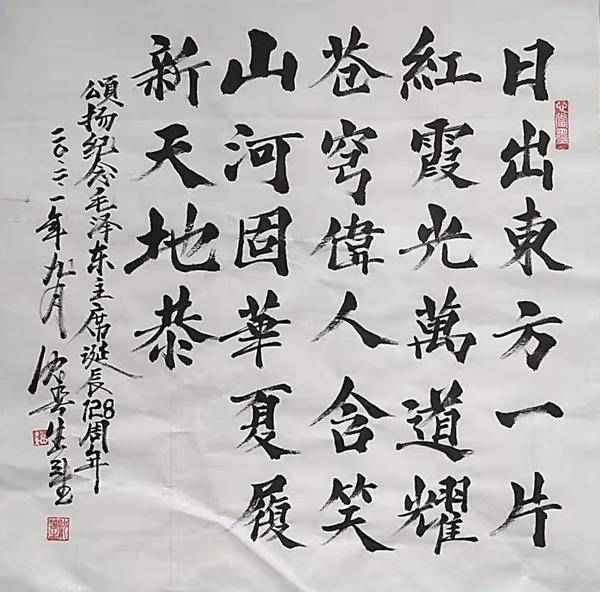 日出東方一片
紅霞光萬道耀
苍穹偉人含笑
山河固華夏履
新天地恭
頌扬纪念毛泽东主席诞辰128周年
二〇二一年九月